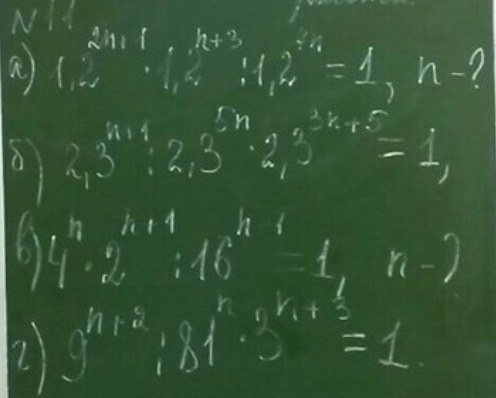 №11
а) 1,2^{2n+1} · 1,2^{n+3} : 1,2^{7n} = 1, n - ?
б) 2,3^{n+1} : 2,3^{5n} · 2,3^{3n+5} = 1,
в) 4^{n} · 2^{n+1} : 16^{n-1} = 1, n - ?
г) 9^{n+2} : 81^{n} · 3^{n+3} = 1.